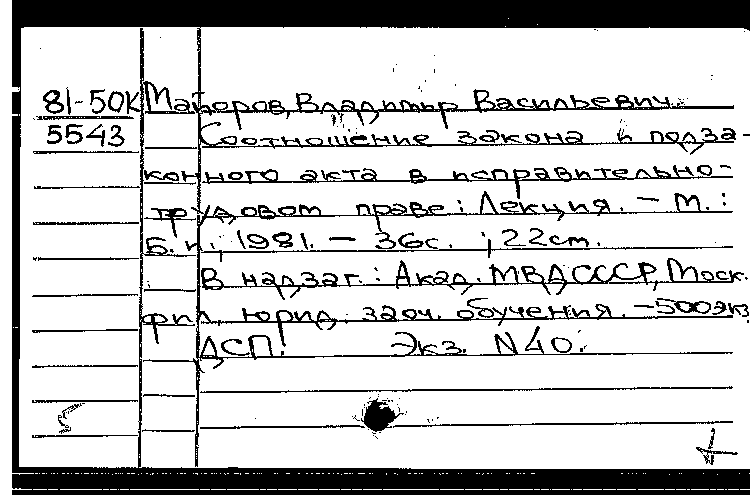 81-50К Майоров, Владимир Васильевич.
5543 Соотношение закона и подза-
конного акта в исправительно-
трудовом праве: Лекция. – М.:
Б.и., 1981. – 36с. ; 22см.
В надзаг.: Акад. МВД СССР, Моск.
фил. юрид. заоч. обучения. –500экз
ДСП! Экз. N40.
5